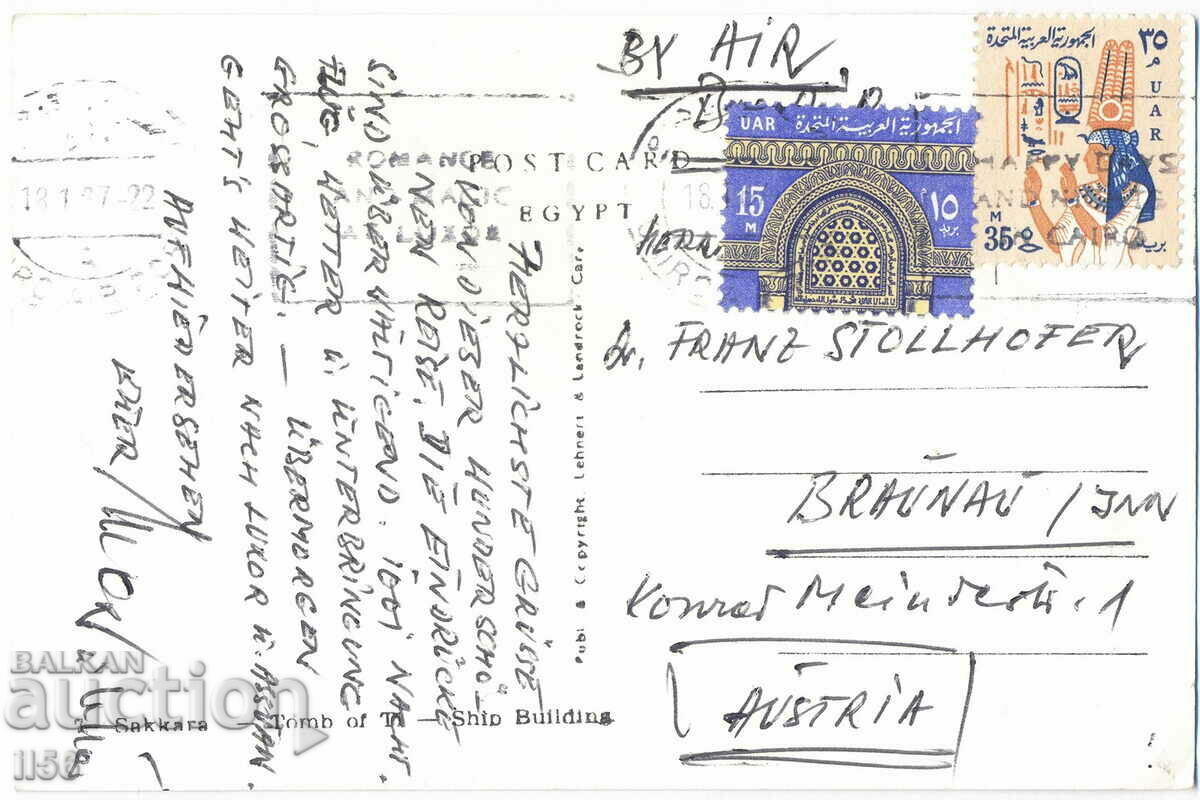 BY AIR
POST CARD
EGYPT
HERRN
Dr. FRANZ STOLLHOFER
BRAUNAU / INN
1
AUSTRIA
الجمهورية العربية المتحدة
UAR
15
M
١٥
بريد
الجمهورية العربية المتحدة
٣٥
م
UAR
M
35
بريد
18.1.67-22
ROMANCE
AND MAGIC
AT LUXOR
HAPPY DAYS
AND NIGHTS
IN CAIRO
HERZLICHSTE GRÜSSE
VON DIESER WUNDERSCHÖ-
NEN REISE. DIE EINDRÜCKE
SIND ÜBERWÄLTIGEND.
FLUG, WETTER U. UNTERBRINGUNG
GROSSARTIG. — ÜBERMORGEN
GEHT'S WEITER NACH LUXOR U. ASSUAN.
AUFWIEDERSEHEN
EUER
Publ. & Copyright. Lehnert & Landrock. Cairo
Sakkara — Tomb of Ti — Ship Building
BALKAN
auction
1156